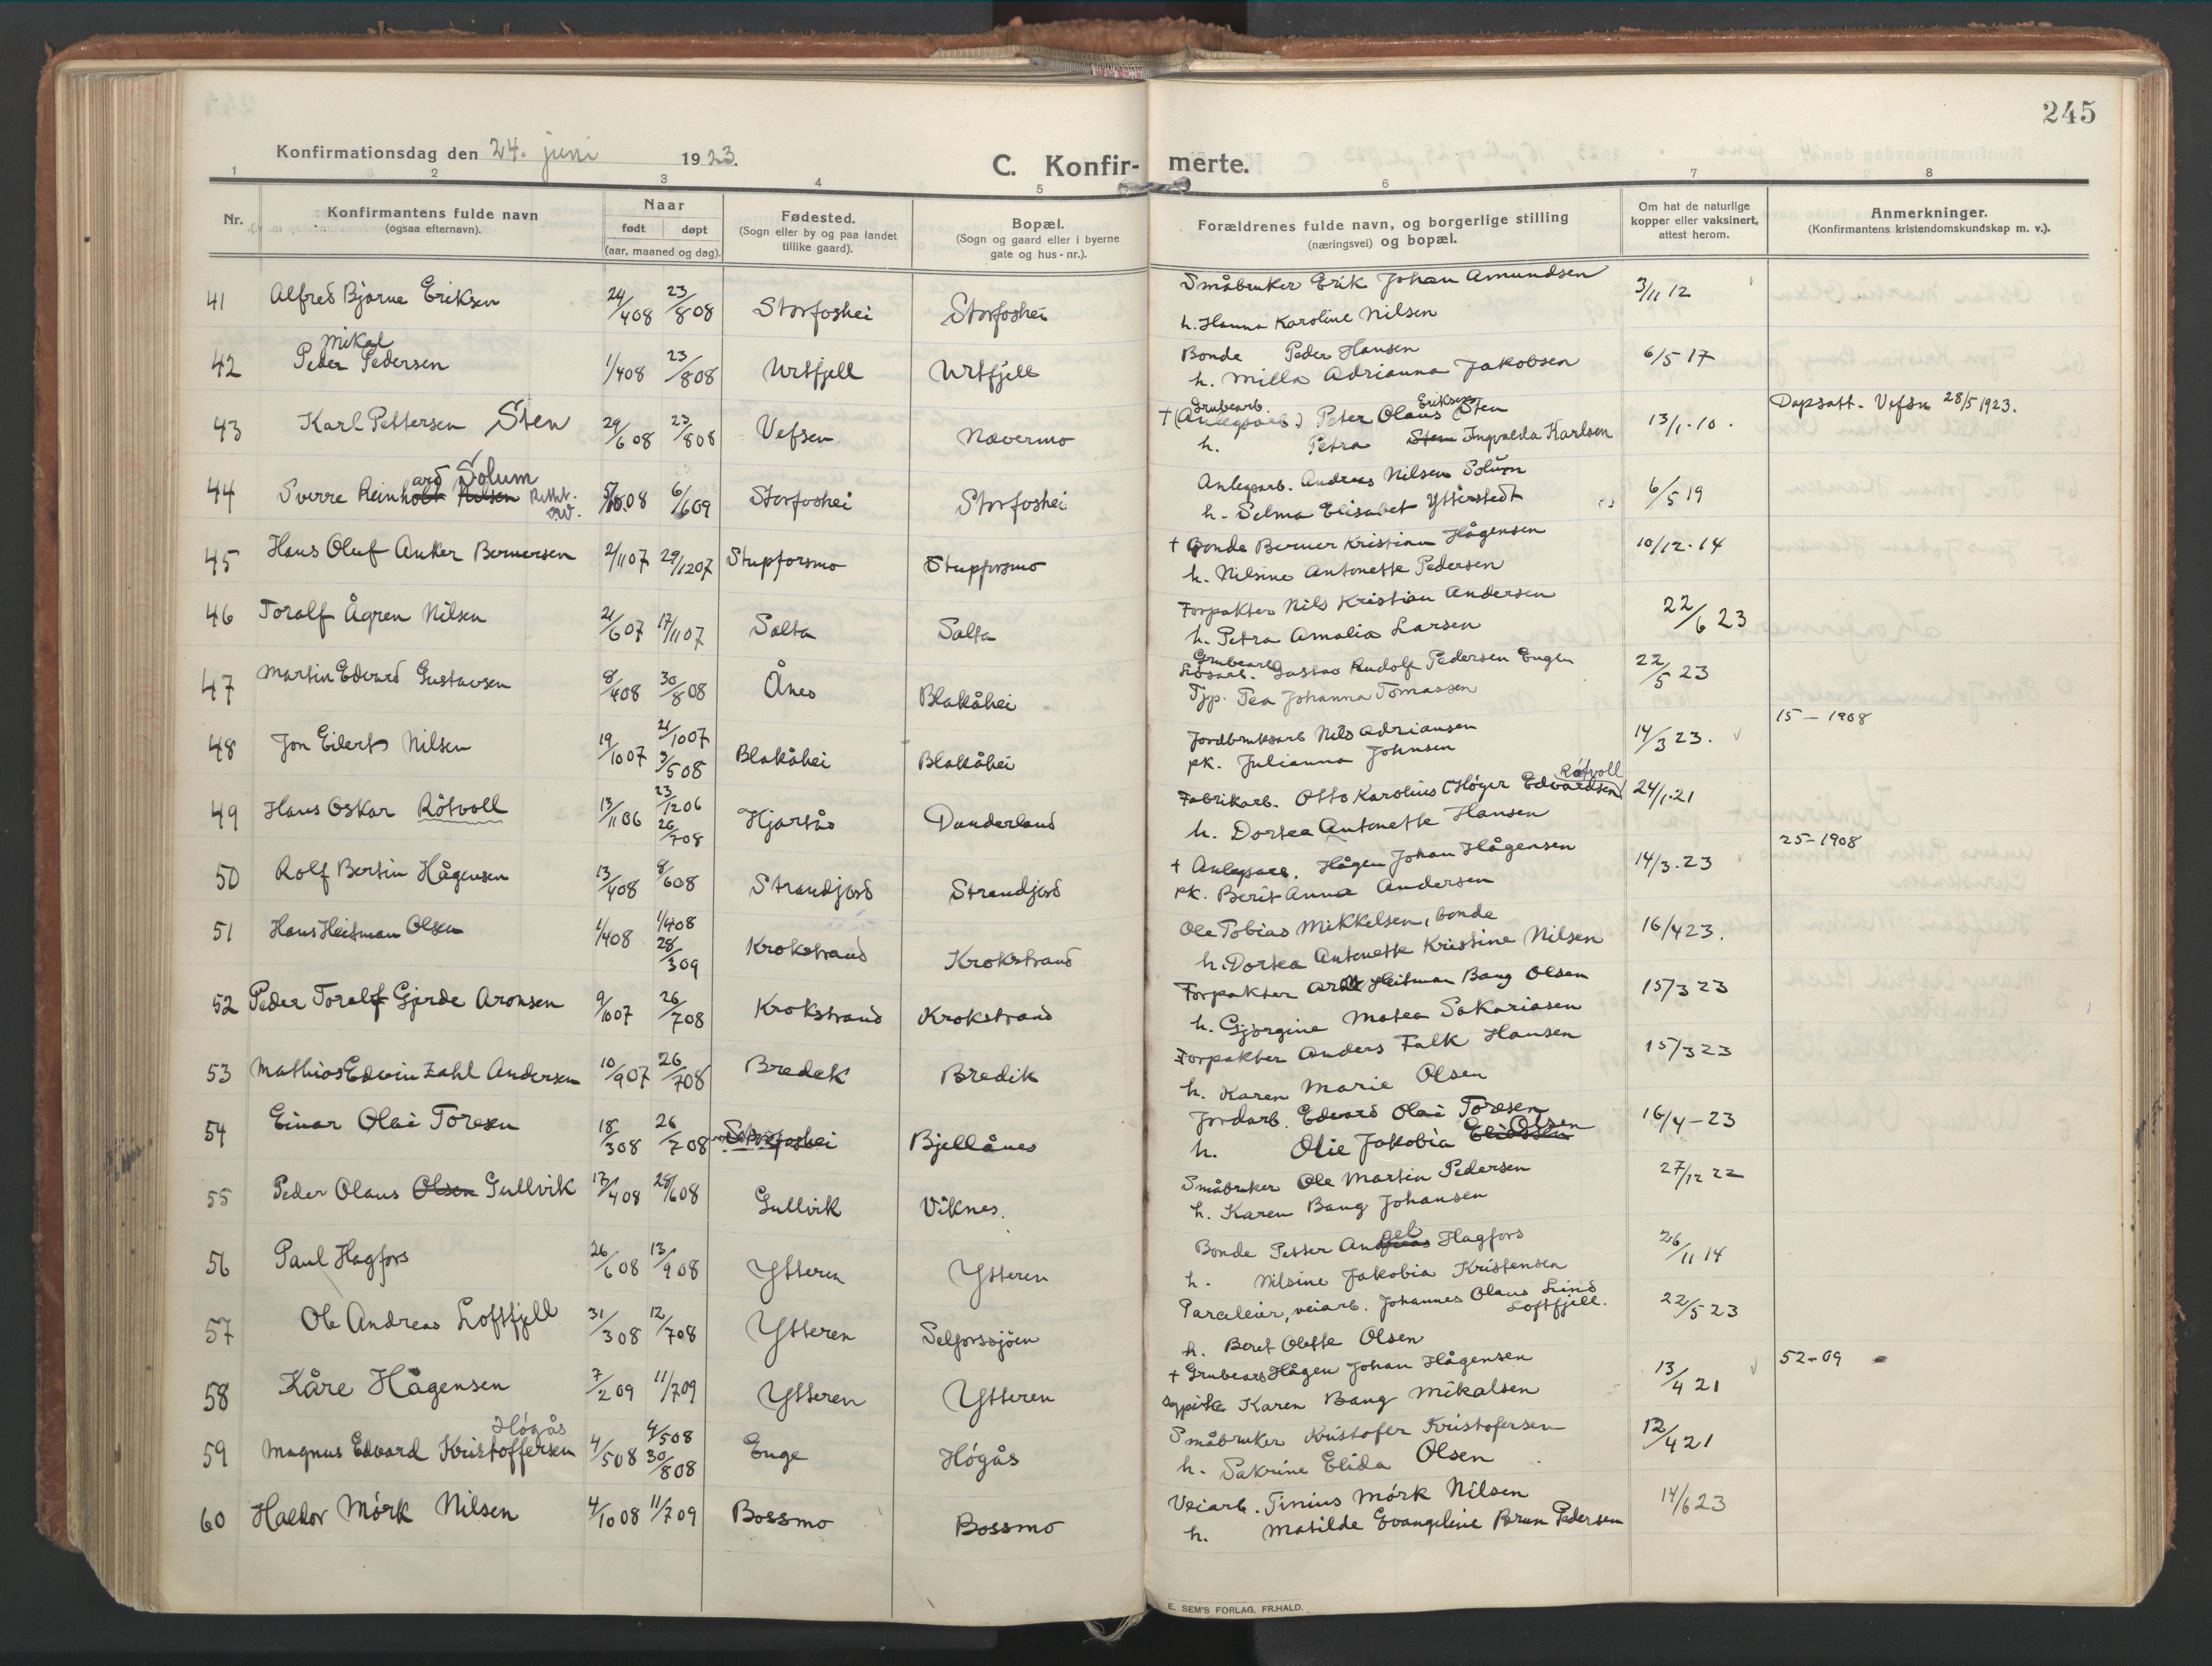 245
Konfirmationsdag den 24. juni 1923.
C. Konfir- merte.
1 2 3 4 5 6 7 8
Nr. Konfirmantens fulde navn (ogsaa efternavn). Naar født døpt (aar, maaned og dag). Fødested. (Sogn eller by og paa landet tillike gaard). Bopæl. (Sogn og gaard eller i byerne gate og hus-nr.). Forældrenes fulde navn, og borgerlige stilling (næringsvei) og bopæl. Om hat de naturlige kopper eller vaksinert, attest herom. Anmerkninger. (Konfirmantens kristendomskundskap m. v.).
41 Alfred Bjarne Eriksen 24/4 08 23/8 08 Storfoshei Storfoshei Småbruker Erik Johan Amundsen 3/11 12
h. Hanna Karoline Nilsen
42 Peder Mikal Pedersen 1/4 08 23/8 08 Urtfjell Urtfjell Bonde Peder Hansen 6/5 17
h. Milla Adrianna Jakobsen
43 Karl Pettersen Sten 29/6 08 23/8 08 Vefsen Nævermo † Grubearb. (Anlegsarb.) Peter Olaus Eriksen Sten 13/1. 10. Dapsatt. Vefsn 28/5 1923.
h. Petra Sten Ingvalda Karlsen
44 Sverre Reinholt ard Nilsen Solum Rettet. 5/10.08 6/6 09 Storfoshei Storfoshei Anlegsarb. Andreas Nilsen Solum 6/5 19
h. Selma Elisabet Ytterstedt
45 Hans Oluf Anker Bernersen 2/11 07 29/12 07 Stupforsmo Stupforsmo † Bonde Berner Kristian Hågensen 10/12. 14
h. Nilsine Antonette Pedersen
46 Toralf Ågren Nilsen 21/6 07 17/11 07 Salta Salta Forpakter Nils Kristian Andersen 22/6 23
h. Petra Amalia Larsen
47 Martin Edvard Gustavsen 8/4 08 30/8 08 Ånes Blakåhei Grubearb. Gustav Rudolf Pedersen Engen 22/5 23
Tjp. Tea Johanna Tomassen
48 Jon Eilert Nilsen 19/10 07 21/10 07 3/5 08 Blakåhei Blakåhei Jordbruksarb Nils Adriansen 14/3 23. 15 - 1908
pk. Julianna Johnsen
49 Hans Oskar Rötvoll 13/11 06 23/12 06 26/7 08 Hjartås Dunderland Fabrikarb. Otto Karolius (Höger Edvardsen) Rötvoll 24/1. 21
h. Dortea Antonette Hansen
50 Rolf Bertin Hågensen 13/4 08 8/6 08 Strandjord Strandjord † Anlegsarb. Hågen Johan Hågensen 14/3. 23 25-1908
pk. Berit Anna Andersen
51 Hans Heitman Olsen 1/4 08 1/4 08 28/3 09 Krokstrand Krokstrand Ole Tobias Mikkelsen, bonde 16/4 23.
h. Dortea Antonette Kristine Nilsen
52 Peder Toralf Gjerde Aronsen 9/10 07 26/7 08 Krokstrand Krokstrand Forpakter Heitman Bang Olsen 15/3 23
h. Gjørgine Matea Sakariasen
53 Mathias Edvin Zahl Andersen 10/9 07 26/7 08 Bredek Bredik Forpakter Anders Falk Hansen 15/3 23
h. Karen Marie Olsen
54 Einar Olai Toresen 18/3 08 26/7 08 Storfoshei Bjellånes Jordarb. Edvard Olai Toresen 16/4 - 23
h. Olie Jakobia Eliassen Olsen
55 Peder Olaus Olsen Gullvik 13/4 08 28/6 08 Gullvik Viknes. Småbruker Ole Martin Pedersen 27/12 22
h. Karen Bang Johansen
56 Paul Hagfors 26/6 08 13/9 08 Ytteren Ytteren Bonde Petter Angel Hagfors 26/11 14
h. Nilsine Jakobia Kristensen
57 Ole Andreas Loftfjell 31/3 08 12/7 08 Ytteren Selforssjöen Parceleier, veiarb. Johannes Olaus Lind Loftfjell. 22/5 23
h. Beret Olette Olsen
58 Kåre Hågensen 7/2 09 11/7 09 Ytteren Ytteren † Grubearb Hågen Johan Hågensen 13/4 21 52-09
Karen Bang Mikalsen
59 Magnus Edvard Kristoffersen Högås 4/5 08 4/5 08 30/8 08 Enge Högås Småbruker Kristofer Kristofersen 12/4 21
h. Sakrine Elida Olsen
60 Haldor Mörk Nilsen 4/10 08 11/7 09 Bossmo Bossmo Veiarb. Tinius Mörk Nilsen 14/6 23
h. Matilde Evangeline Brun Pedersen
E. SEM'S FORLAG, FR.HALD.